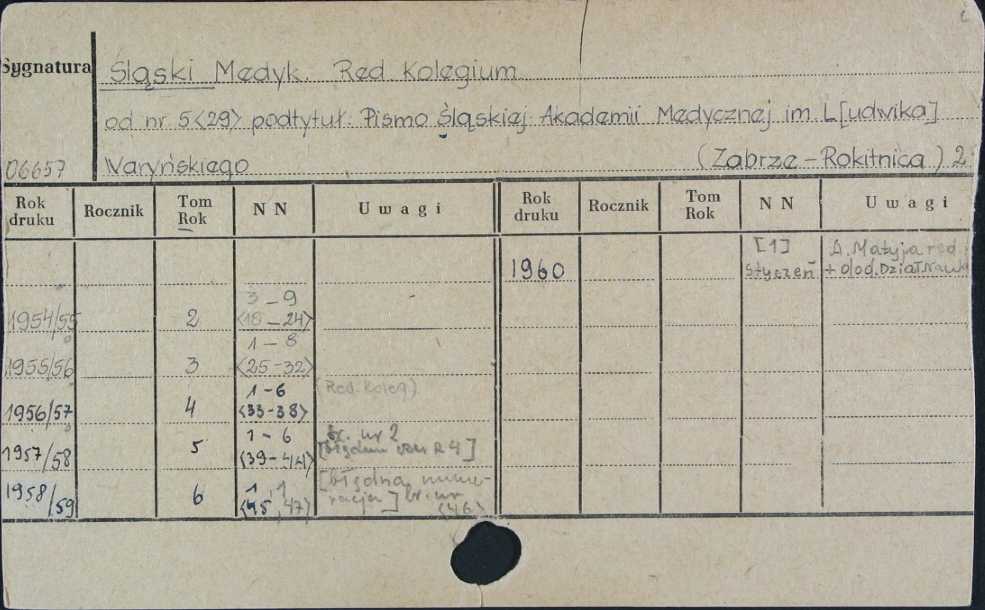 Sygnatura
Śląski Medyk. Red. Kolegium
od nr 5<29> podtytuł: Pismo Śląskiej Akademii Medycznej im. L[udwika]
06657 Waryńskiego (Zabrze-Rokitnica) 2
Rok druku Rocznik Tom Rok NN Uwagi Rok druku Rocznik Tom Rok NN Uwagi
1960 [1] styczeń A. Matyja red. + dod. Dział. Nauk
1954/55 2 3-9 <18-24>
1955/56 3 1-8 <25-32>
1956/57 4 1-6 <33-38> (Red. Koleg)
1957/58 5 1-6 <39-44> br. nr 2 [błędnie R 4]
1958/59 6 1, <45, 47> [błędna numeracja] br. nr <46>